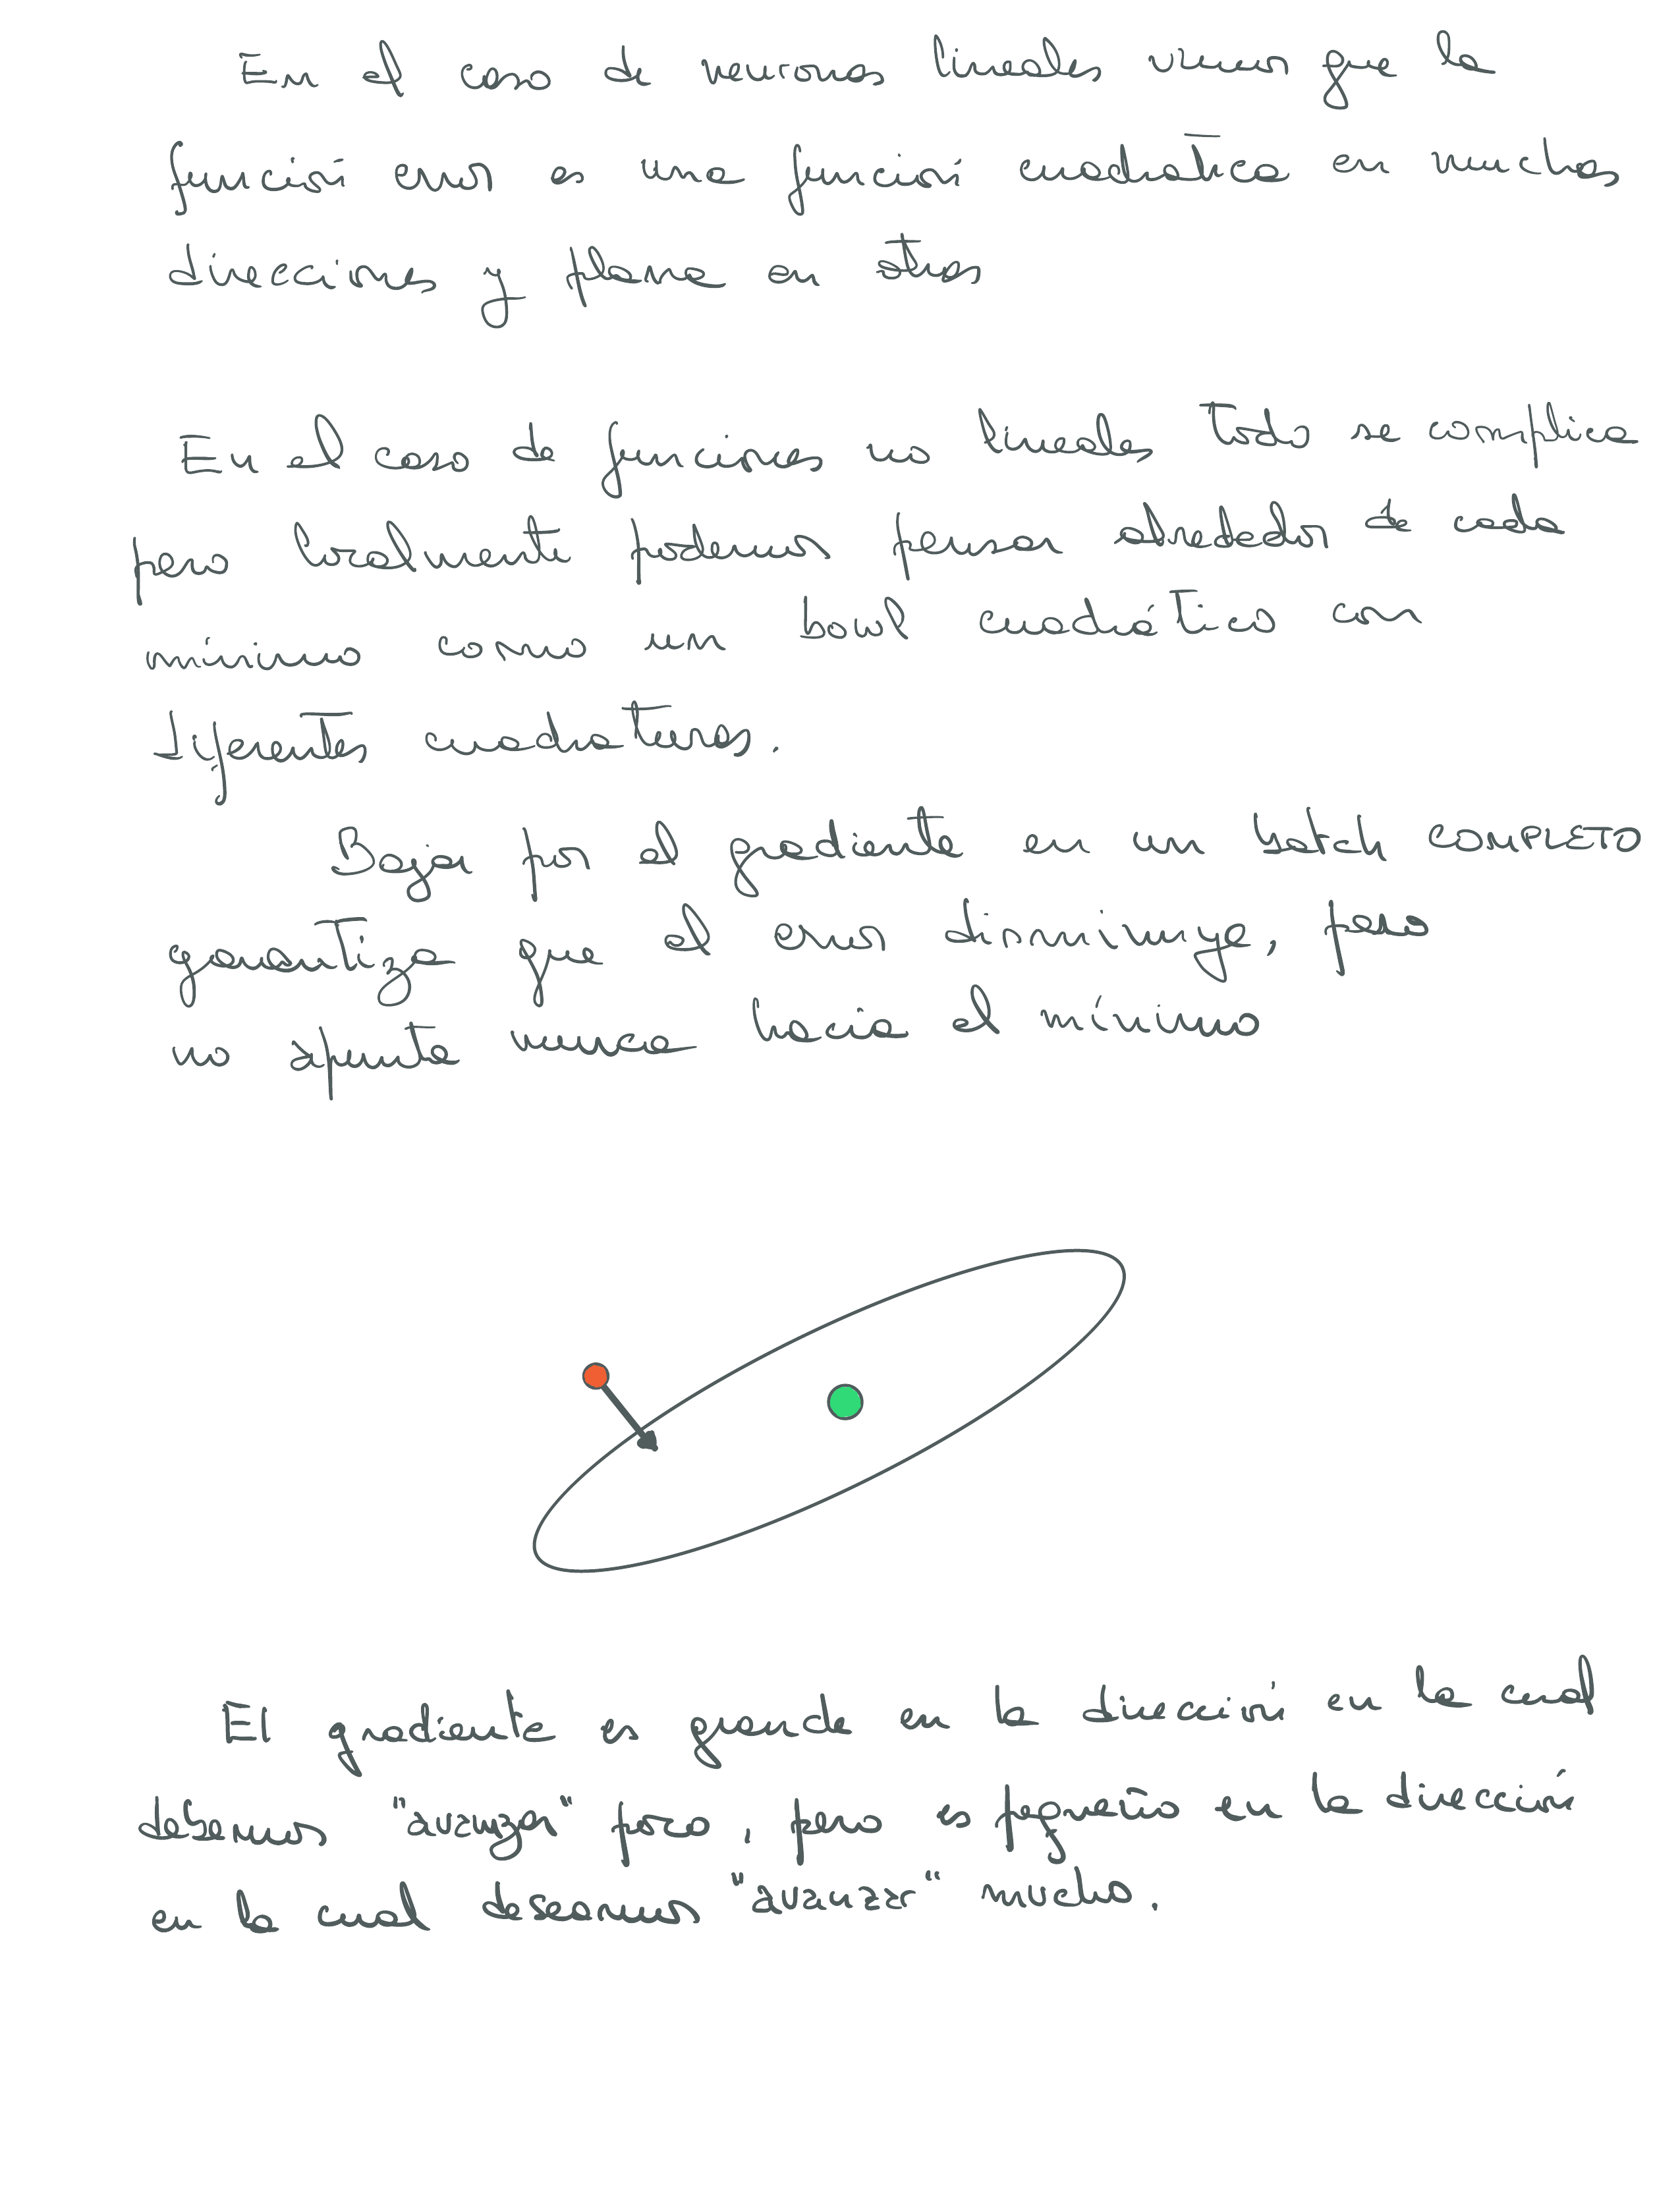 En el caso de neuronas lineales vimos que la
función error es una función cuadratica en muchas
direcciones y plana en otras
En el caso de funciones no lineales todo se complica
pero localmente podemos pensar alrededor de cada
mínimo como un bowl cuadrático con
diferentes cuadraturas.
Bajar por el gradiente en un batch COMPLETO
garantiza que el error disminuye, pero
no apunta nunca hacia el mínimo
El gradiente es grande en la dirección en la cual
debemos "avanzar" poco, pero es pequeño en la dirección
en la cual deseamos "avanzar" mucho.